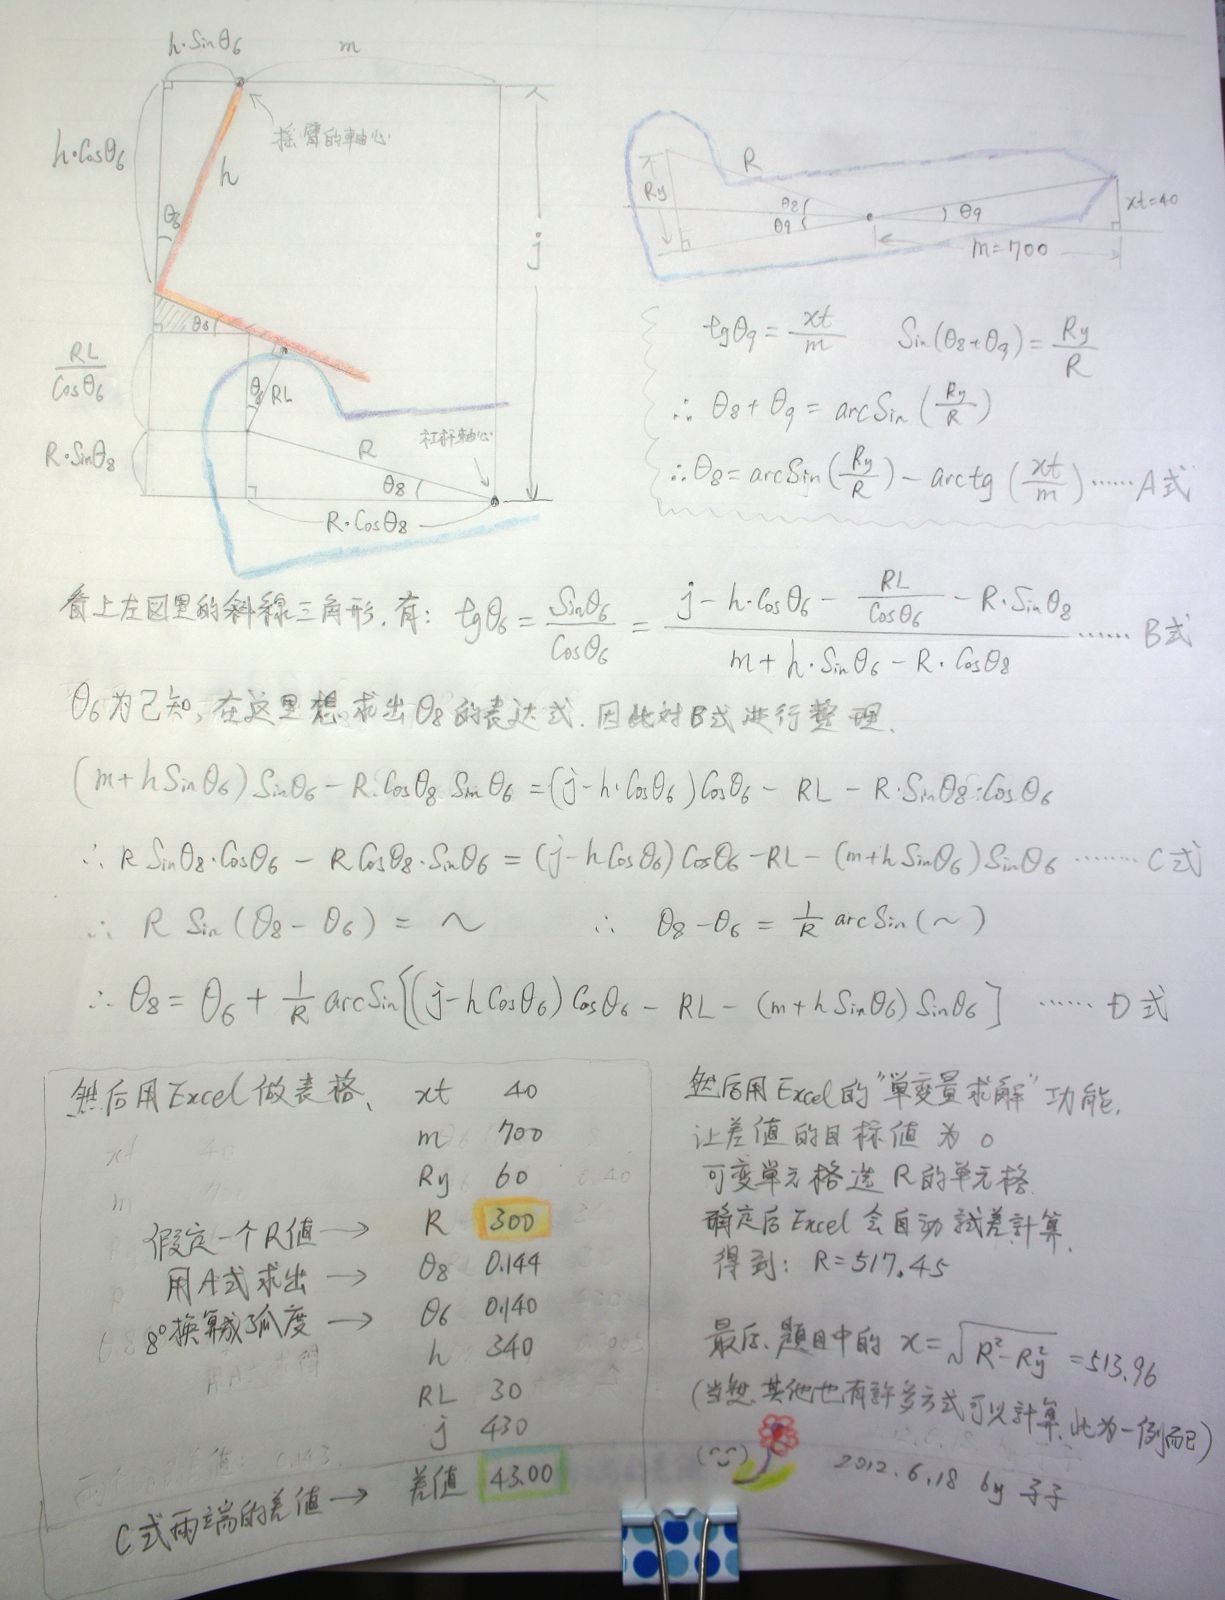 h·Sinθ6
m
摇臂的軸心
h·Cosθ6
h
θ6
j
θ6
RL
Cosθ6
θ6
RL
R
杠杆軸心
R·Sinθ8
θ8
R·Cosθ8
R
Ry
θ8
θ9
θ9
xt=40
m=700
tgθ9 = xt/m Sin(θ8+θ9) = Ry/R
∴ θ8 + θ9 = arcSin (Ry/R)
∴ θ8 = arcSin (Ry/R) − arctg (xt/m) ······ A式
看上左図里的斜線三角形，有： tgθ6 = Sinθ6/Cosθ6 = (j − h·Cosθ6 − RL/Cosθ6 − R·Sinθ8)/(m + h·Sinθ6 − R·Cosθ8) ······ B式
θ6为已知，在这里想求出θ8的表达式．因此対B式进行整理．
(m+hSinθ6)Sinθ6 − R·Cosθ8 Sinθ6 = (j−h·Cosθ6)Cosθ6 − RL − R·Sinθ8·Cosθ6
∴ R Sinθ8·Cosθ6 − R Cosθ8·Sinθ6 = (j−hCosθ6)Cosθ6 −RL − (m+hSinθ6)Sinθ6 ······· C式
∴ R Sin (θ8 − θ6) = ～ ∴ θ8 −θ6 = 1/R arcSin (～)
∴ θ8 = θ6 + 1/R arcSin[(j−hCosθ6)Cosθ6 − RL − (m+hSinθ6)Sinθ6] ······ D式
然后用Excel做表格、 xt 40
m 700
Ry 60
假定一个R值 → R 300
用A式求出 → θ8 0.144
8°换算成弧度 → θ6 0.140
h 340
RL 30
j 430
C式両端的差値 → 差値 43.00
然后用Excel的"単变量求解"功能，
让差值的目标値为0
可变単元格选R的単元格．
确定后Excel会自动試差計算．
得到： R=517.45
最后、題目中的 x=√(R²−Ry²) =513.96
(当然、其他也有許多方式可以計算、此为一例而已)
2012.6.18 by 子子